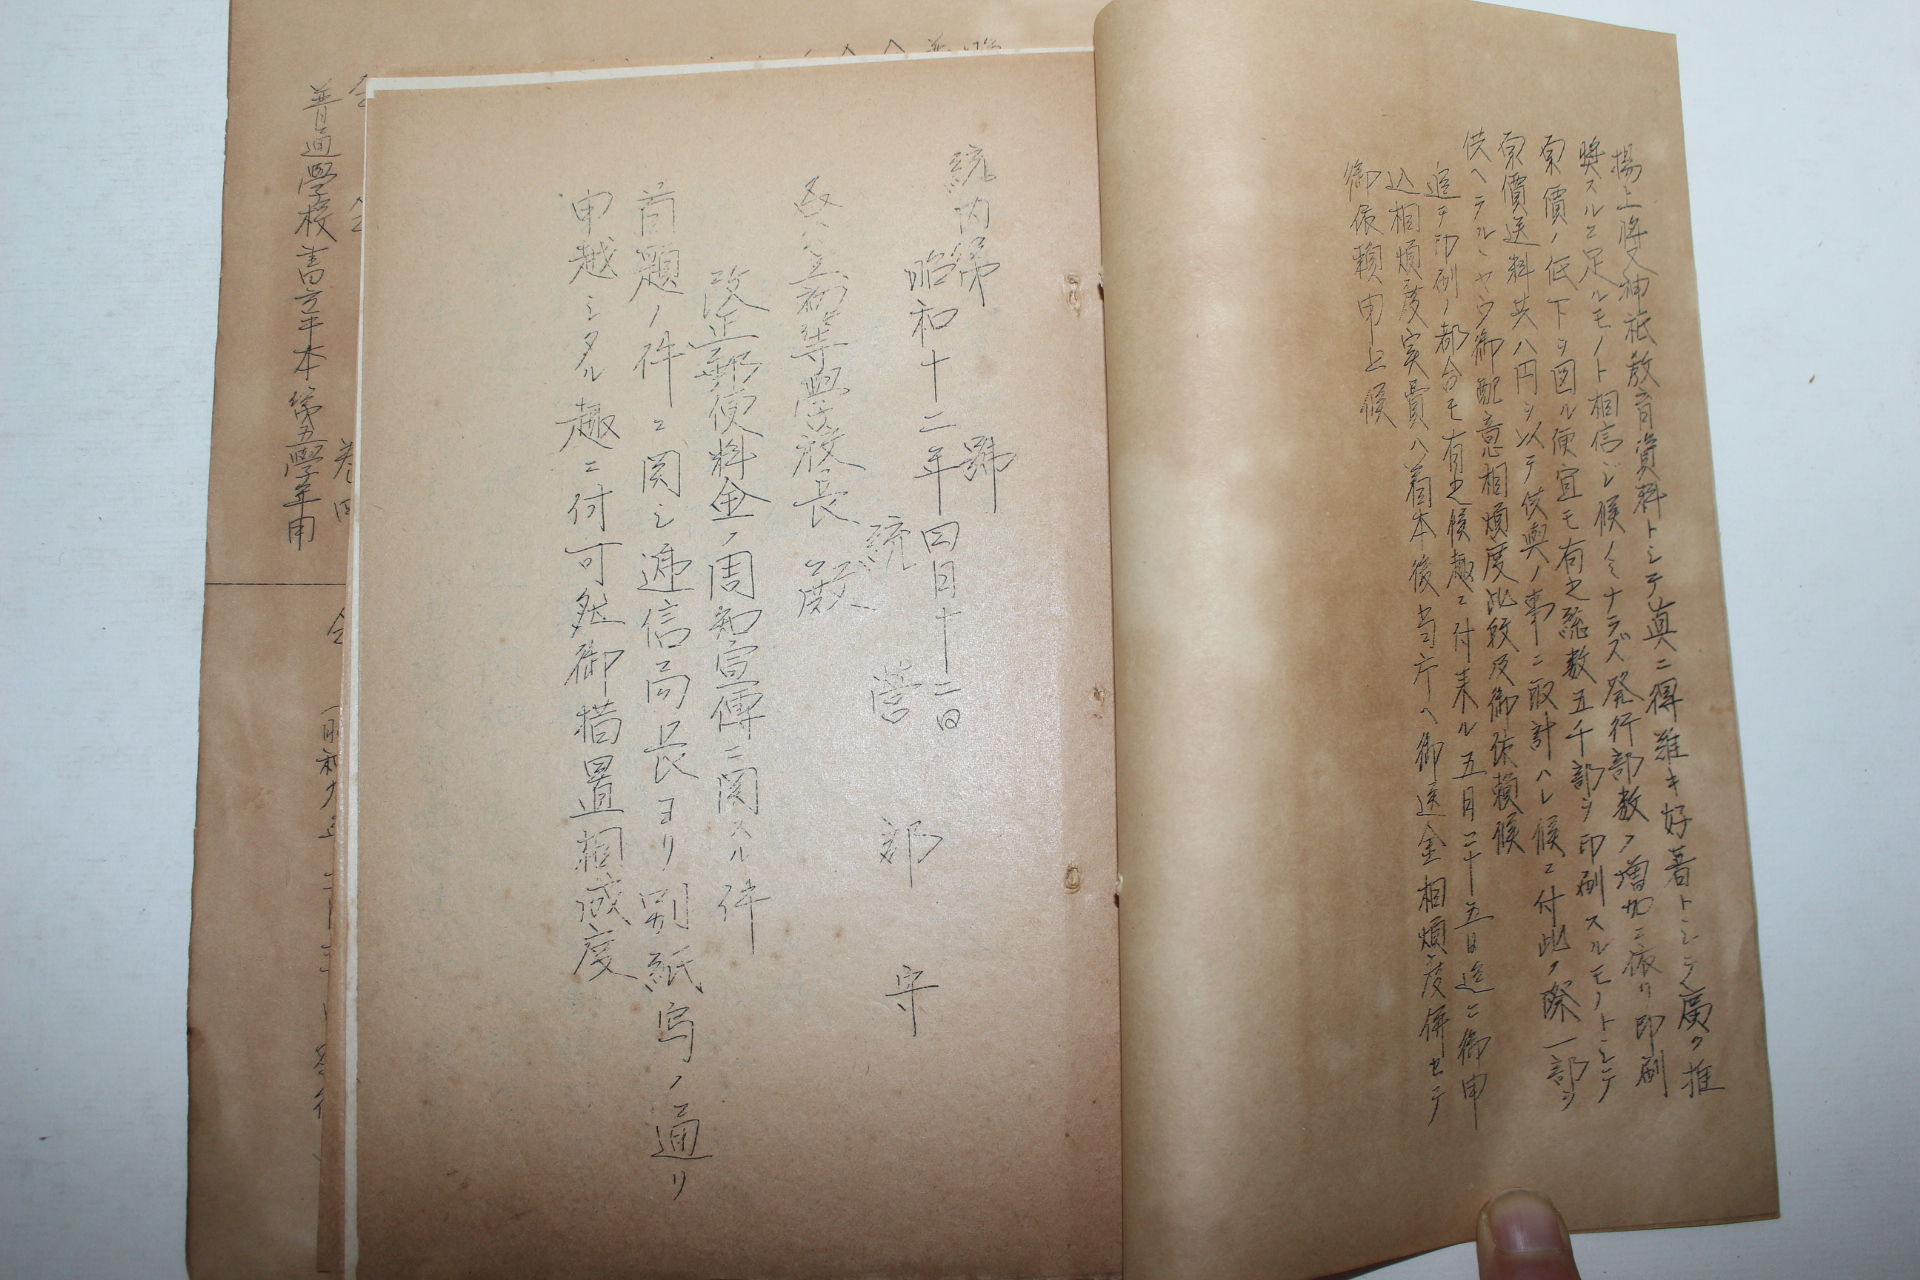 揚上將又神祇教育資料トシテ真ニ得難キ好著トシテ廣ク推
奬スルニ足ルモノト相信ジ候ノミナラズ発行部数ノ増加ニ依リ印刷
原價ノ低下ヲ図ル便宜モ有之総数五千部ヲ印刷スルモノトシテ
原價送料共八円ヲ以テ供與ノ事ニ取計ハレ候ニ付此ノ際一部ヲ
供ヘラルヽヤウ御配意相煩度此段及御依頼候
追テ印刷ノ都合モ有之候趣ニ付来ル五月二十五日迄ニ御申
込相煩度実費ハ着本後当庁ヘ御送金相煩度併セテ
御依頼申上候
統内第　　號
昭和十二年四月十二日
統營郡守
各公立初等學校長殿
改正郵便料金ノ周知宣傳ニ関スル件
首題ノ件ニ関シ遞信局長ヨリ別紙写ノ通リ
申越シタル趣ニ付可然御措置相成度
卷四
普通學校書方手本第五學年用